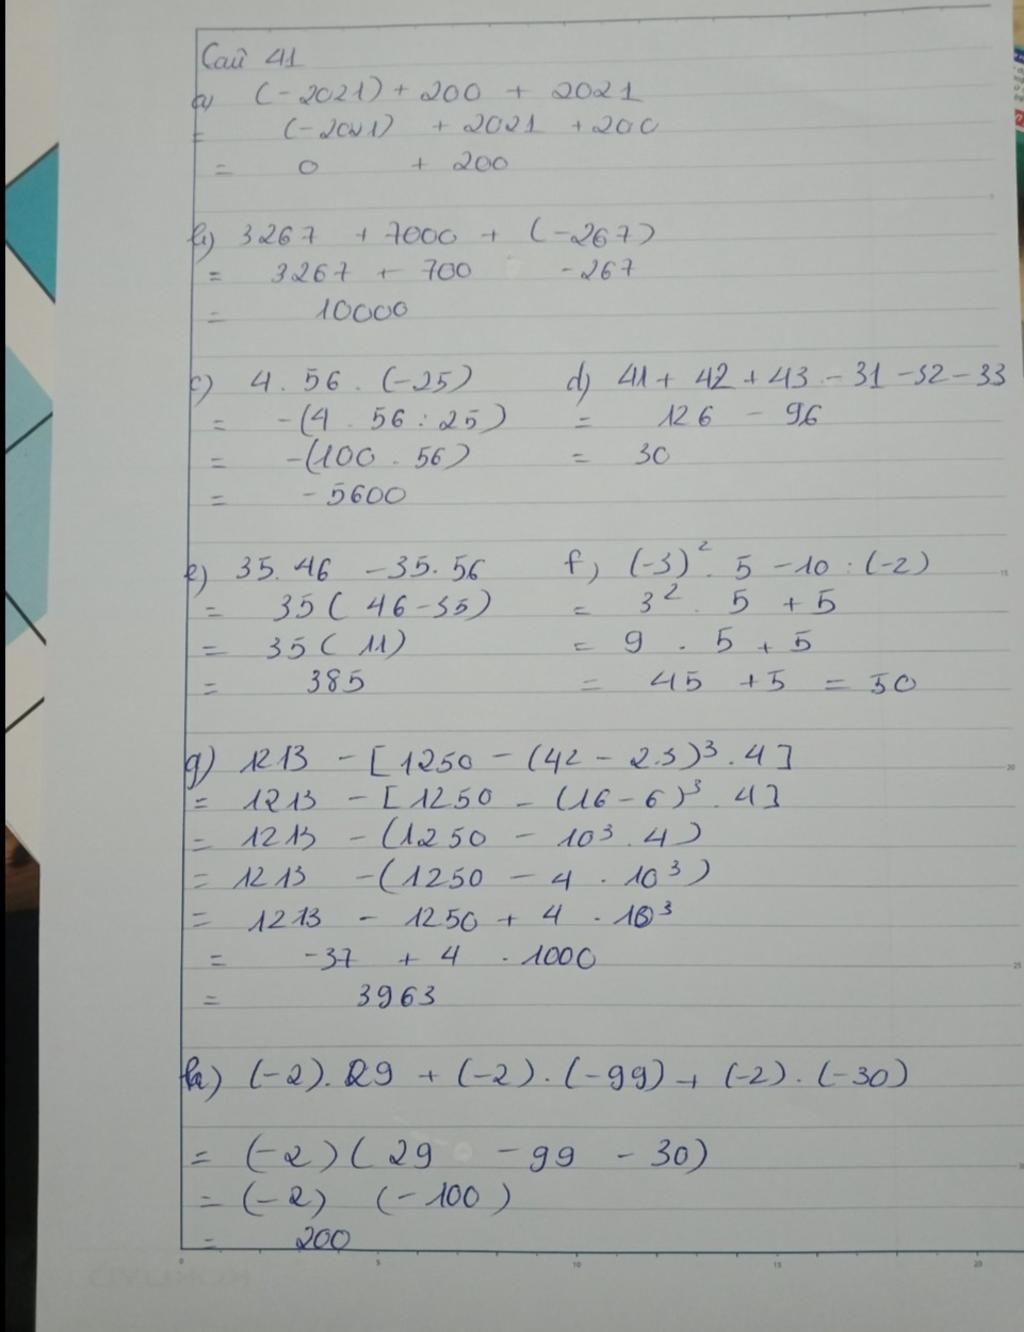 Câu 41
a) (-2021) + 200 + 2021
= (-2021) + 2021 + 200
= 0 + 200
b) 3267 + 7000 + (-267)
= 3267 + 700 -267
= 10000
c) 4. 56. (-25)
= -(4 56 : 25)
= -(100 . 56)
= - 5600
d) 41 + 42 + 43 - 31 - 32 - 33
= 126 - 96
= 30
e) 35. 46 - 35. 56
= 35 ( 46 - 35)
= 35 ( 11)
= 385
f) (-3)². 5 - 10 : (-2)
= 3². 5 + 5
= 9 . 5 + 5
= 45 + 5 = 50
g) 1213 - [1250 - (42 - 2.3)³. 4]
= 1213 - [1250 - (16 - 6)³. 4]
= 1213 - (1250 - 10³. 4)
= 1213 - (1250 - 4 . 10³)
= 1213 - 1250 + 4 . 10³
= -37 + 4 . 1000
= 3963
h) (-2). 29 + (-2). (-99) + (-2). (-30)
= (-2) ( 29 - 99 - 30)
= (-2) (-100)
= 200
0 5 10 15 20